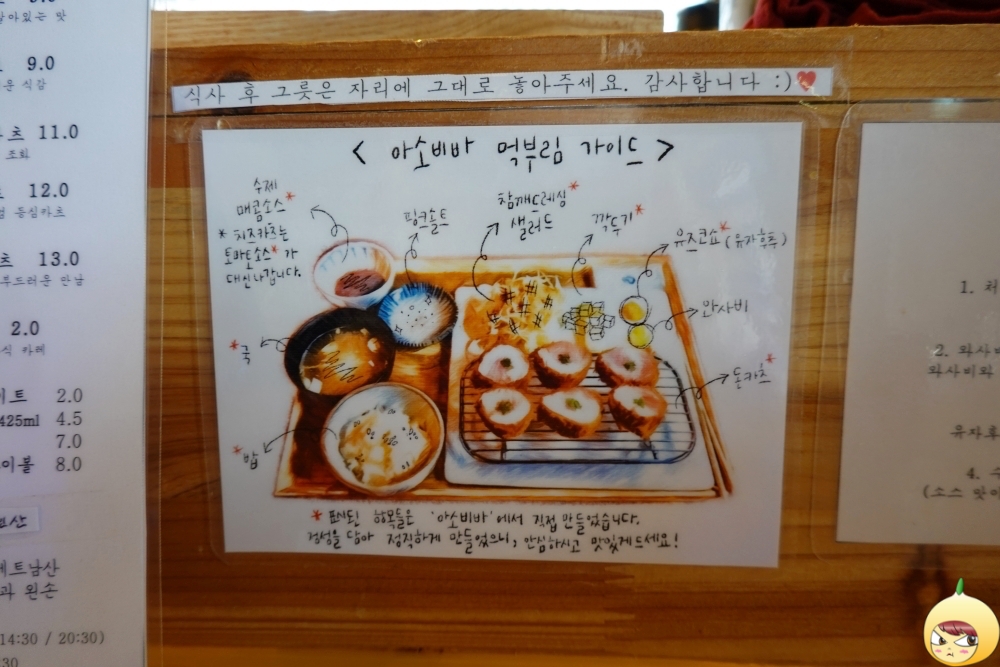 식사 후 그릇은 자리에 그대로 놓아주세요. 감사합니다 :)
< 아소비바 먹부림 가이드 >
수제
매콤소스*
* 치즈카츠는
토마토소스* 가
대신나갑니다.
핑크솔트
참깨드레싱*
샐러드
깍두기*
유즈코쇼*(유자후추)
와사비
돈카츠*
*국
*밥
* 표시된 항목들은 '아소비바'에서 직접 만들었습니다.
정성을 담아 정직하게 만들었으니, 안심하시고 맛있게드세요!
9.0
츠 11.0
조화
12.0
등심카츠
츠 13.0
부드러운 만남
2.0
식 카레
이트 2.0
425ml 4.5
7.0
이볼 8.0
트남산
과 왼손
14:30 / 20:30)
1. 처
2. 와사
와사비와
유자후
4.
(소스 맛이